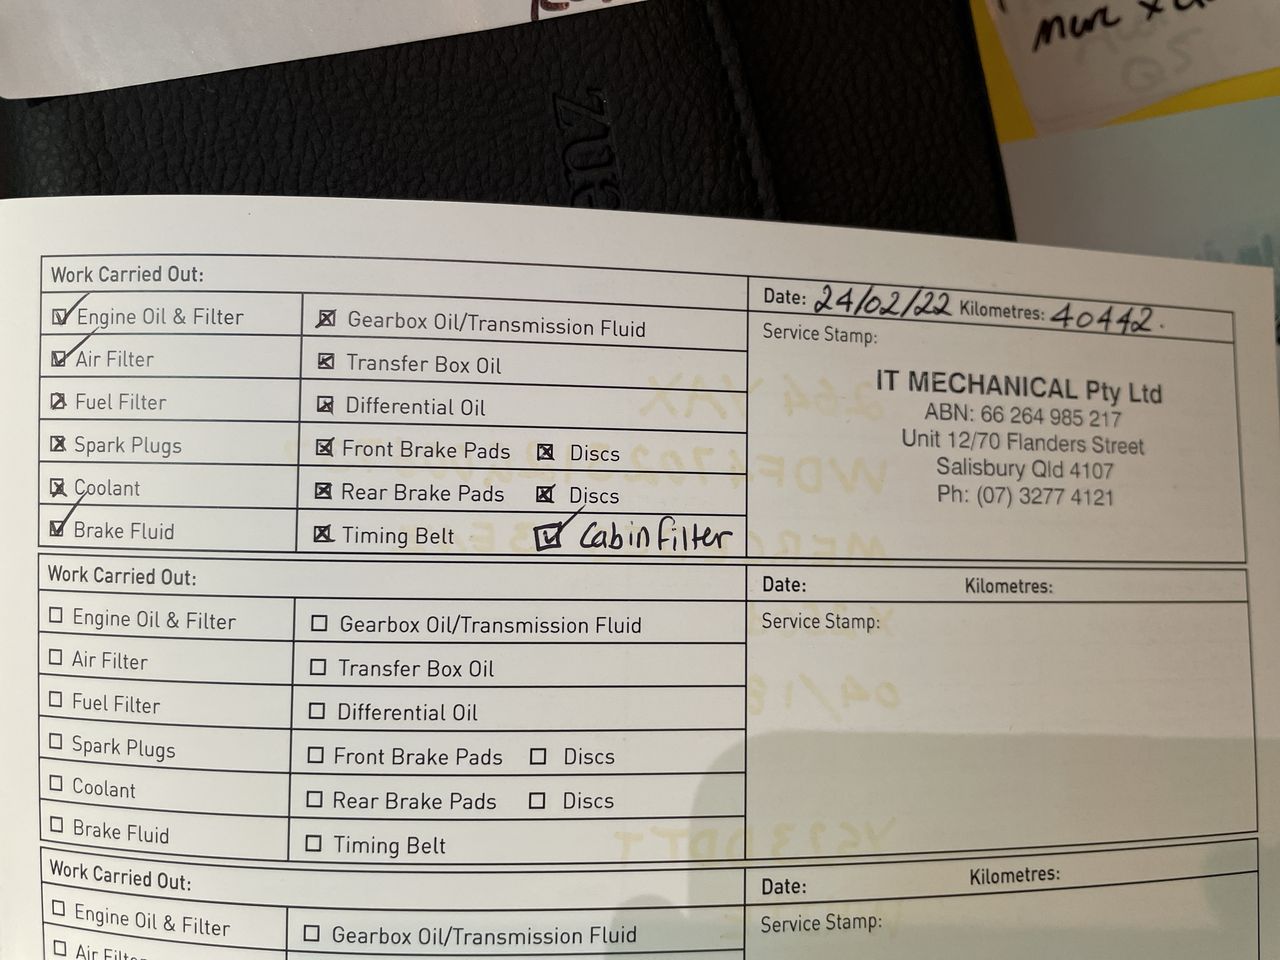 more x
QS
zue
Work Carried Out:
Date: 24/02/22 Kilometres: 40442.
Engine Oil & Filter
Gearbox Oil/Transmission Fluid
Service Stamp:
Air Filter
Transfer Box Oil
IT MECHANICAL Pty Ltd
Fuel Filter
Differential Oil
ABN: 66 264 985 217
Spark Plugs
Front Brake Pads Discs
Unit 12/70 Flanders Street
Coolant
Rear Brake Pads Discs
Salisbury Qld 4107
Brake Fluid
Timing Belt Cabin Filter
Ph: (07) 3277 4121
Work Carried Out:
Date: Kilometres:
Engine Oil & Filter
Gearbox Oil/Transmission Fluid
Service Stamp:
Air Filter
Transfer Box Oil
Fuel Filter
Differential Oil
Spark Plugs
Front Brake Pads Discs
Coolant
Rear Brake Pads Discs
Brake Fluid
Timing Belt
Work Carried Out:
Date: Kilometres:
Engine Oil & Filter
Gearbox Oil/Transmission Fluid
Service Stamp:
Air Filter